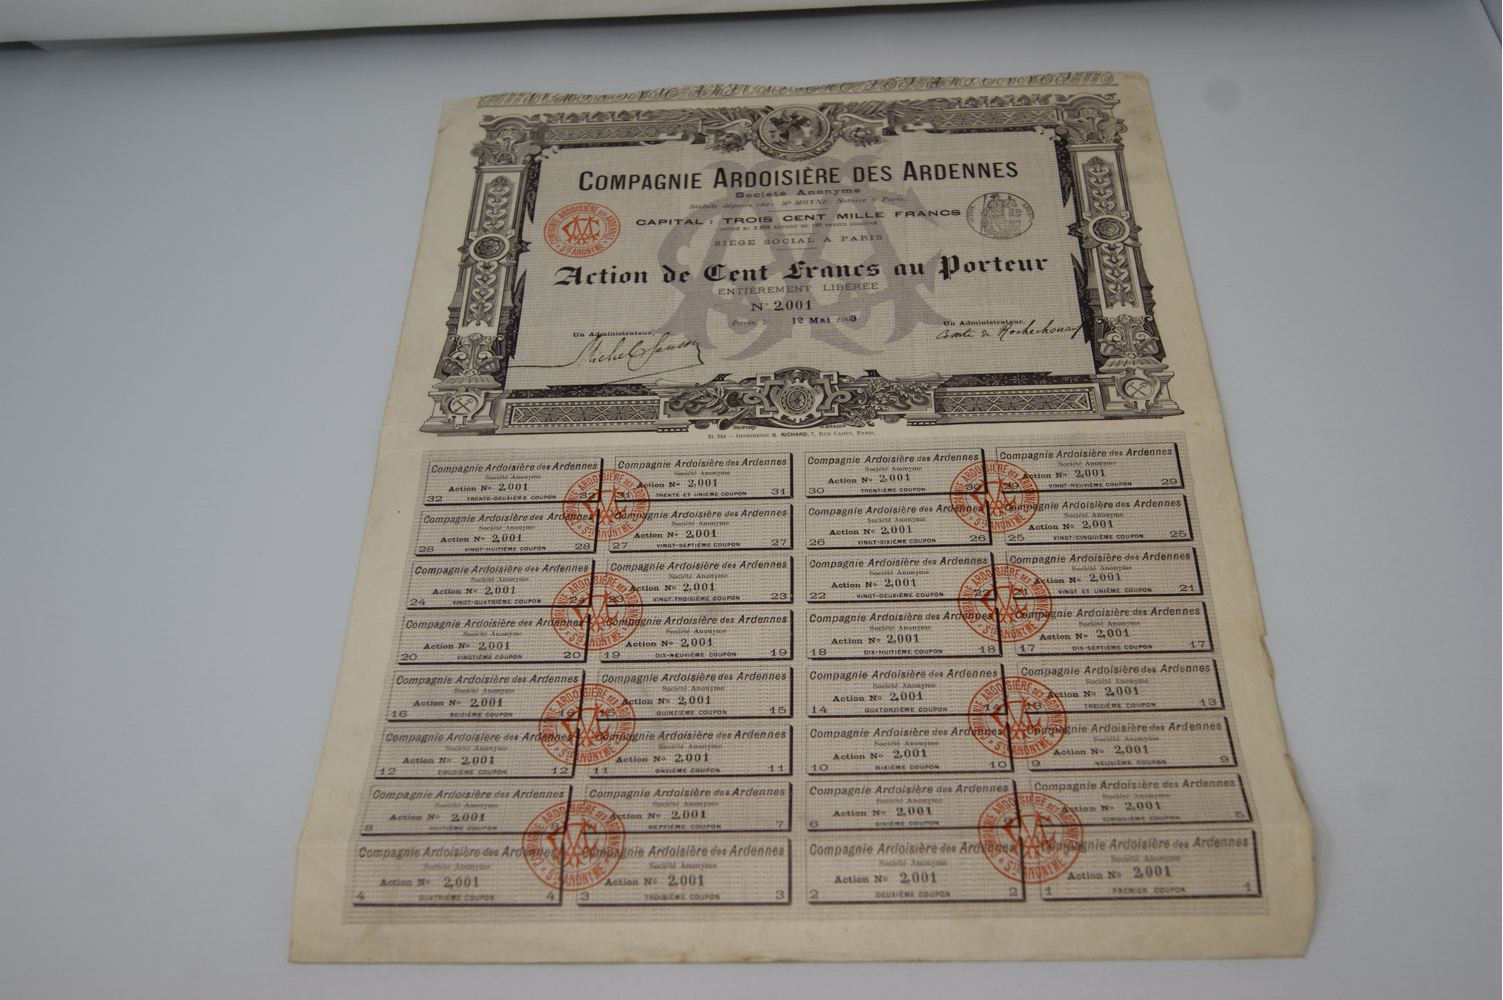 COMPAGNIE ARDOISIÈRE DES ARDENNES
Société Anonyme
Statuts déposés chez Me MOYNE, Notaire à Paris.
CAPITAL : TROIS CENT MILLE FRANCS
DIVISÉ EN 3.000 ACTIONS DE 100 FRANCS CHACUNE
SIÈGE SOCIAL A PARIS
COMPAGNIE ARDOISIÈRE DES ARDENNES
Sté ANONYME
Action de Cent Francs au Porteur
ENTIÈREMENT LIBÉRÉE
No 2,001
Paris, le 12 Mai 1903
Un Administrateur, Un Administrateur,
Comte de Rochechouart
21.744 — IMPRIMERIE G. RICHARD, 7, RUE CADET, PARIS.
Compagnie Ardoisière des Ardennes Compagnie Ardoisière des Ardennes Compagnie Ardoisière des Ardennes Compagnie Ardoisière des Ardennes
Société Anonyme Société Anonyme Société Anonyme Société Anonyme
Action No 2,001 Action No 2,001 Action No 2,001 Action No 2,001
32 TRENTE-DEUXIÈME COUPON 32 31 TRENTE ET UNIÈME COUPON 31 30 TRENTIÈME COUPON 30 29 VINGT-NEUVIÈME COUPON 29
Compagnie Ardoisière des Ardennes Compagnie Ardoisière des Ardennes Compagnie Ardoisière des Ardennes Compagnie Ardoisière des Ardennes
Société Anonyme Société Anonyme Société Anonyme Société Anonyme
Action No 2,001 Action No 2,001 Action No 2,001 Action No 2,001
28 VINGT-HUITIÈME COUPON 28 27 VINGT-SEPTIÈME COUPON 27 26 VINGT-SIXIÈME COUPON 26 25 VINGT-CINQUIÈME COUPON 25
Compagnie Ardoisière des Ardennes Compagnie Ardoisière des Ardennes Compagnie Ardoisière des Ardennes Compagnie Ardoisière des Ardennes
Société Anonyme Société Anonyme Société Anonyme Société Anonyme
Action No 2,001 Action No 2,001 Action No 2,001 Action No 2,001
24 VINGT-QUATRIÈME COUPON 24 23 VINGT-TROISIÈME COUPON 23 22 VINGT-DEUXIÈME COUPON 22 21 VINGT ET UNIÈME COUPON 21
Compagnie Ardoisière des Ardennes Compagnie Ardoisière des Ardennes Compagnie Ardoisière des Ardennes Compagnie Ardoisière des Ardennes
Société Anonyme Société Anonyme Société Anonyme Société Anonyme
Action No 2,001 Action No 2,001 Action No 2,001 Action No 2,001
20 VINGTIÈME COUPON 20 19 DIX-NEUVIÈME COUPON 19 18 DIX-HUITIÈME COUPON 18 17 DIX-SEPTIÈME COUPON 17
Compagnie Ardoisière des Ardennes Compagnie Ardoisière des Ardennes Compagnie Ardoisière des Ardennes Compagnie Ardoisière des Ardennes
Société Anonyme Société Anonyme Société Anonyme Société Anonyme
Action No 2,001 Action No 2,001 Action No 2,001 Action No 2,001
16 SEIZIÈME COUPON 16 15 QUINZIÈME COUPON 15 14 QUATORZIÈME COUPON 14 13 TREIZIÈME COUPON 13
Compagnie Ardoisière des Ardennes Compagnie Ardoisière des Ardennes Compagnie Ardoisière des Ardennes Compagnie Ardoisière des Ardennes
Société Anonyme Société Anonyme Société Anonyme Société Anonyme
Action No 2,001 Action No 2,001 Action No 2,001 Action No 2,001
12 DOUZIÈME COUPON 12 11 ONZIÈME COUPON 11 10 DIXIÈME COUPON 10 9 NEUVIÈME COUPON 9
Compagnie Ardoisière des Ardennes Compagnie Ardoisière des Ardennes Compagnie Ardoisière des Ardennes Compagnie Ardoisière des Ardennes
Société Anonyme Société Anonyme Société Anonyme Société Anonyme
Action No 2,001 Action No 2,001 Action No 2,001 Action No 2,001
8 HUITIÈME COUPON 7 SEPTIÈME COUPON 7 6 SIXIÈME COUPON CINQUIÈME COUPON 5
Compagnie Ardoisière des Ardennes Compagnie Ardoisière des Ardennes Compagnie Ardoisière des Ardennes Compagnie Ardoisière des Ardennes
Société Anonyme Société Anonyme Société Anonyme Société Anonyme
Action No 2,001 Action No 2,001 Action No 2,001 Action No 2,001
4 QUATRIÈME COUPON 4 3 TROISIÈME COUPON 3 2 DEUXIÈME COUPON 2 1 PREMIER COUPON 1